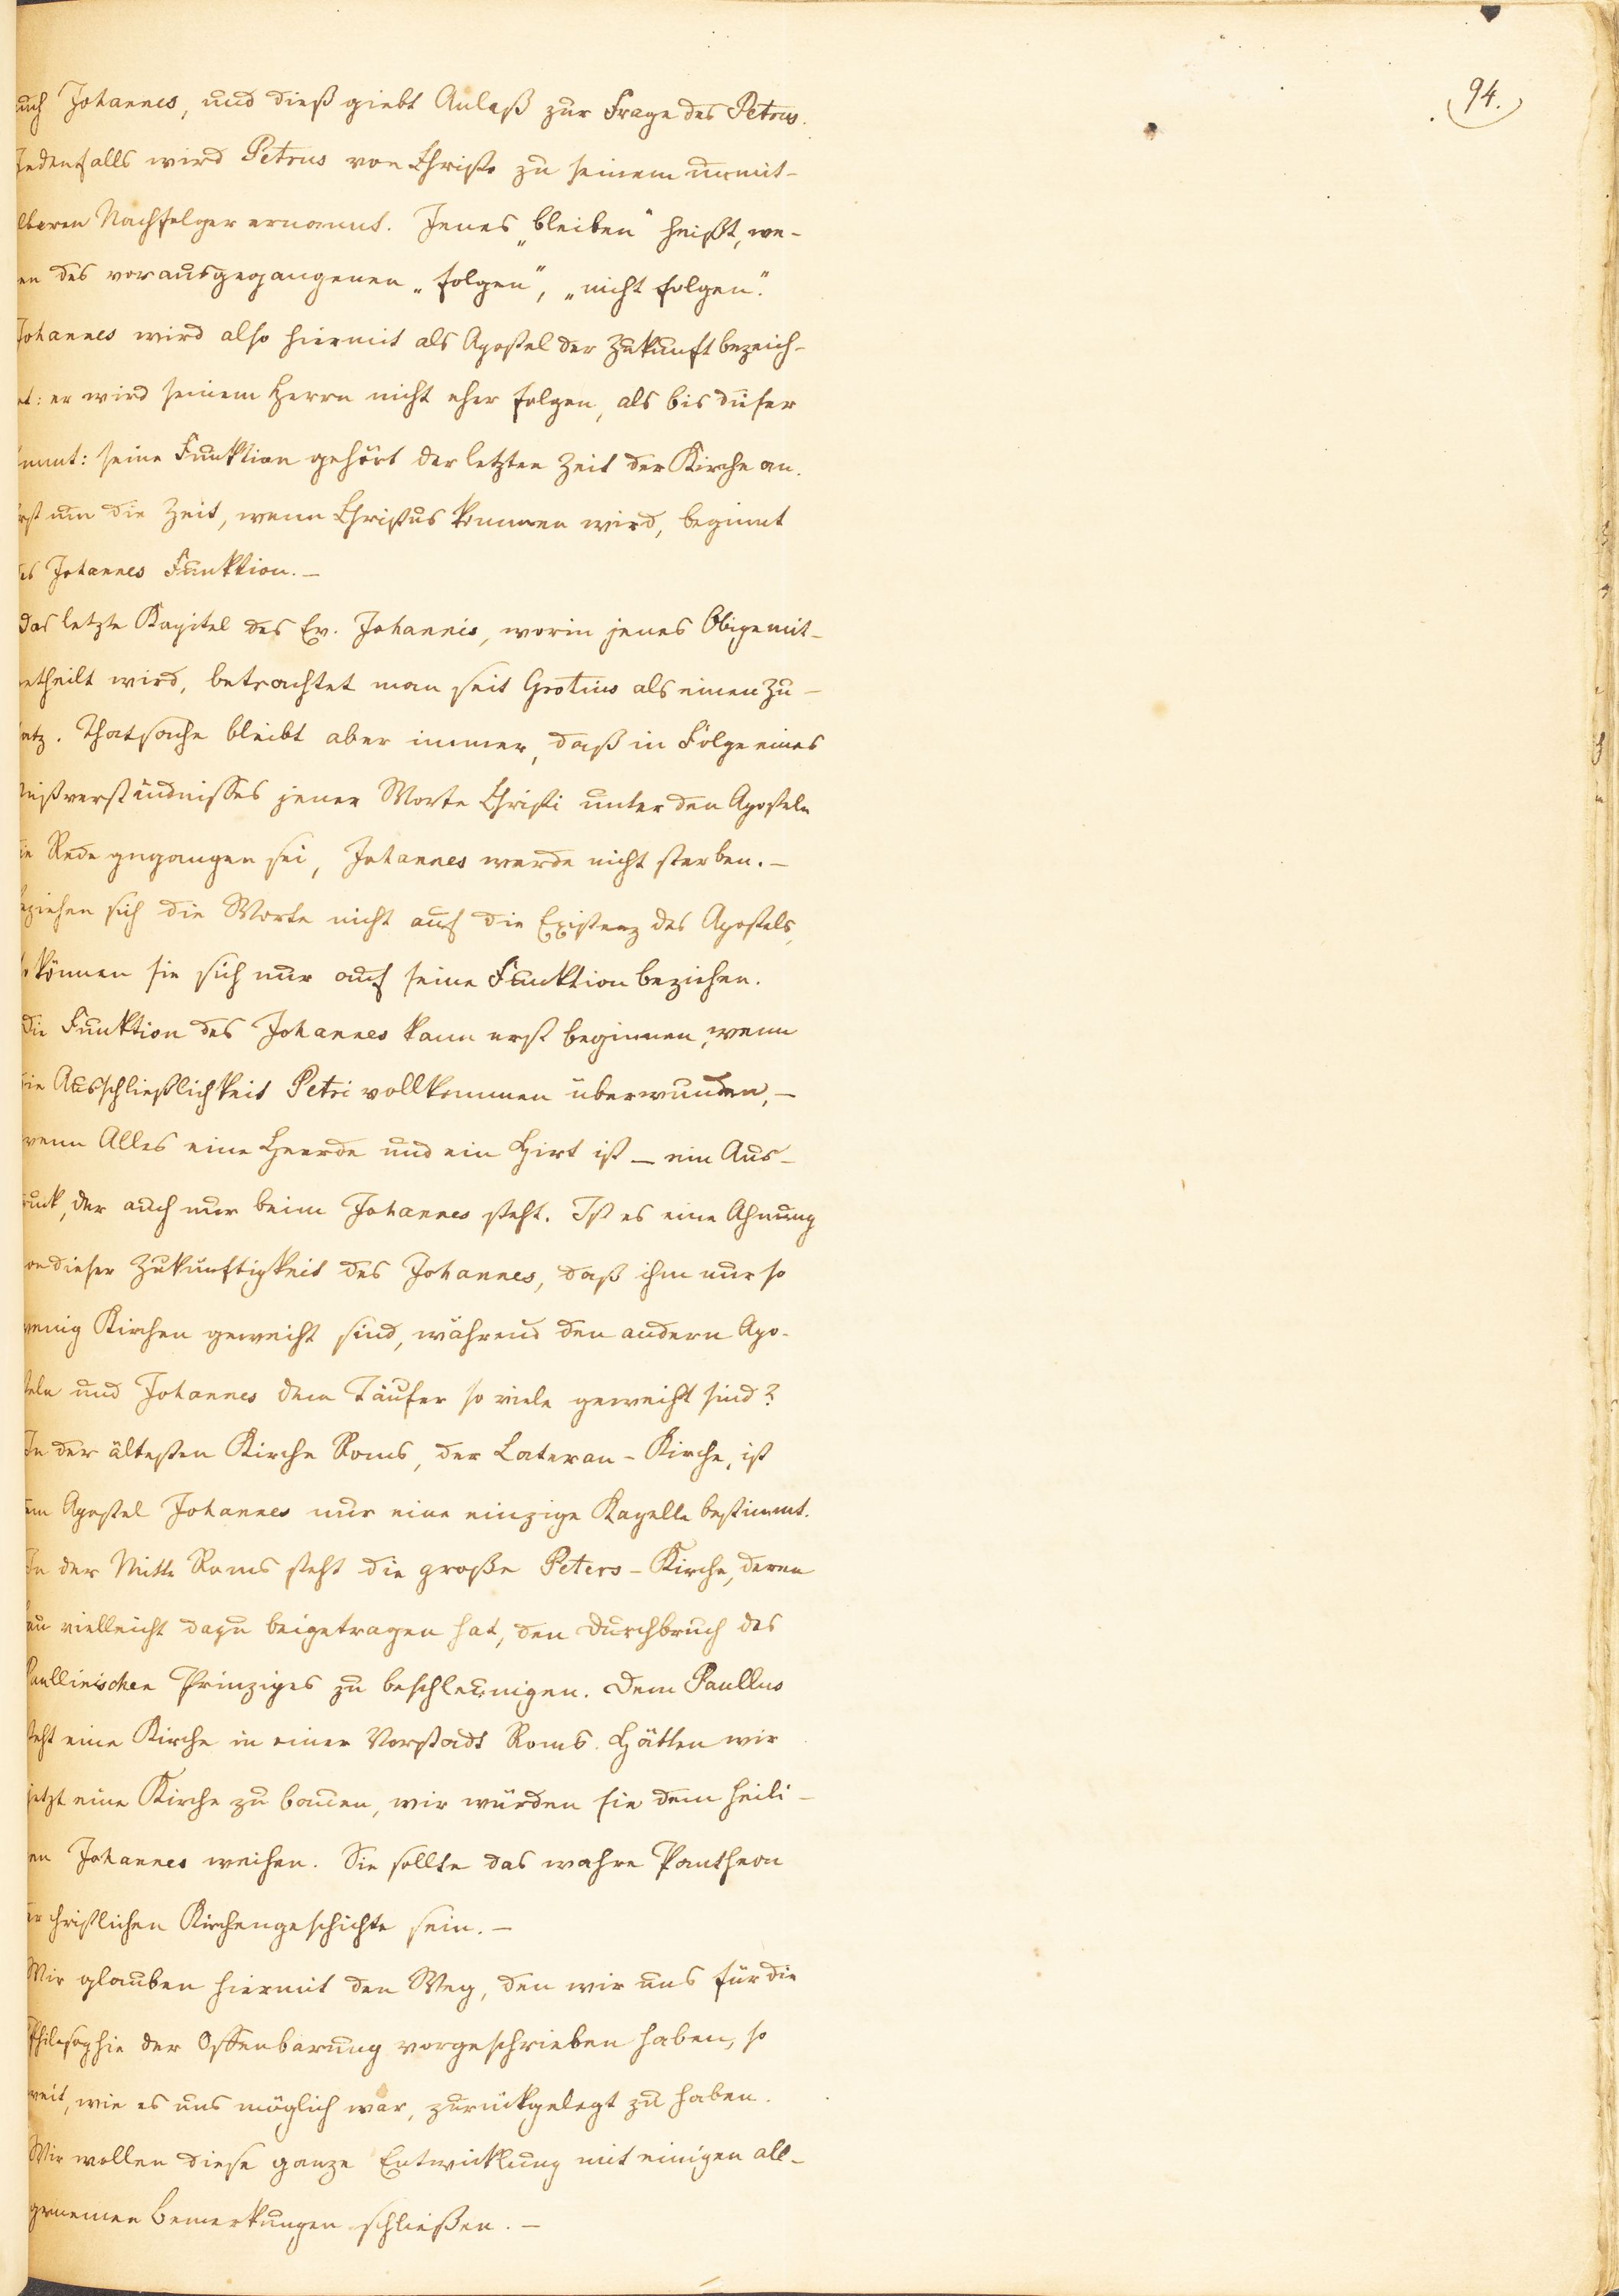 94.
uch Johannes, und dieß giebt Anlaß zur Frage des Petrus.
Jedenfalls wird Petrus von Christo zu seinem unmit-
lbaren Nachfolger ernannt. Jenes „bleiben“ heißt, we-
en des vorausgegangenen „folgen“, „nicht folgen“.
Johannes wird also hiermit als Apostel der Zukunft bezeich-
et: er wird seinem Herrn nicht eher folgen, als bis dieser
mmt: seine Funktion gehört der letzten Zeit der Kirche an.
rst um die Zeit, wenn Christus kommen wird, beginnt
es Johannes Funktion. –
Das letzte Kapitel des Ev. Johannis, worin jenes Obige mit-
etheilt wird, betrachtet man seit Grotius als einen Zu-
atz. Thatsache bleibt aber immer, daß in Folge eines
ißverständnisses jener Worte Christi unter den Aposteln
ie Rede gegangen sei, Johannes werde nicht sterben. –
eziehen sich die Worte nicht auf die Existenz des Apostels,
o können sie sich nur auf seine Funktion beziehen.
Die Funktion des Johannes kann erst beginnen, wenn
die Ausschließlichkeit Petri vollkommen überwunden, –
wenn Alles eine Heerde und ein Hirt ist – ein Aus-
ruck, der auch nur beim Johannes steht. Ist es eine Ahnung
on dieser Zukünftigkeit des Johannes, daß ihm nur so
wenig Kirchen geweiht sind, während den andern Apo-
teln und Johannes dem Täufer so viele geweiht sind?
In der ältesten Kirche Roms, der Lateran-Kirche, ist
em Apostel Johannes nur eine einzige Kapelle bestimmt.
In der Mitte Roms steht die große Peters-Kirche, deren
au vielleicht dazu beigetragen hat, den Durchbruch des
Paullinischen Prinzipes zu beschleunigen. Dem Paullus
teht eine Kirche in einer Vorstadt Roms. Hätten wir
jetzt eine Kirche zu bauen, wir würden sie dem heili-
en Johannes weihen. Sie sollte das wahre Pantheon
er christlichen Kirchengeschichte sein. –
Wir glauben hiermit den Weg, den wir uns für die
Philosophie der Offenbarung vorgeschrieben haben, so
weit, wie es uns möglich war, zurückgelegt zu haben.
Wir wollen diese ganze Entwicklung mit einigen all-
gemeinen Bemerkungen schließen. –